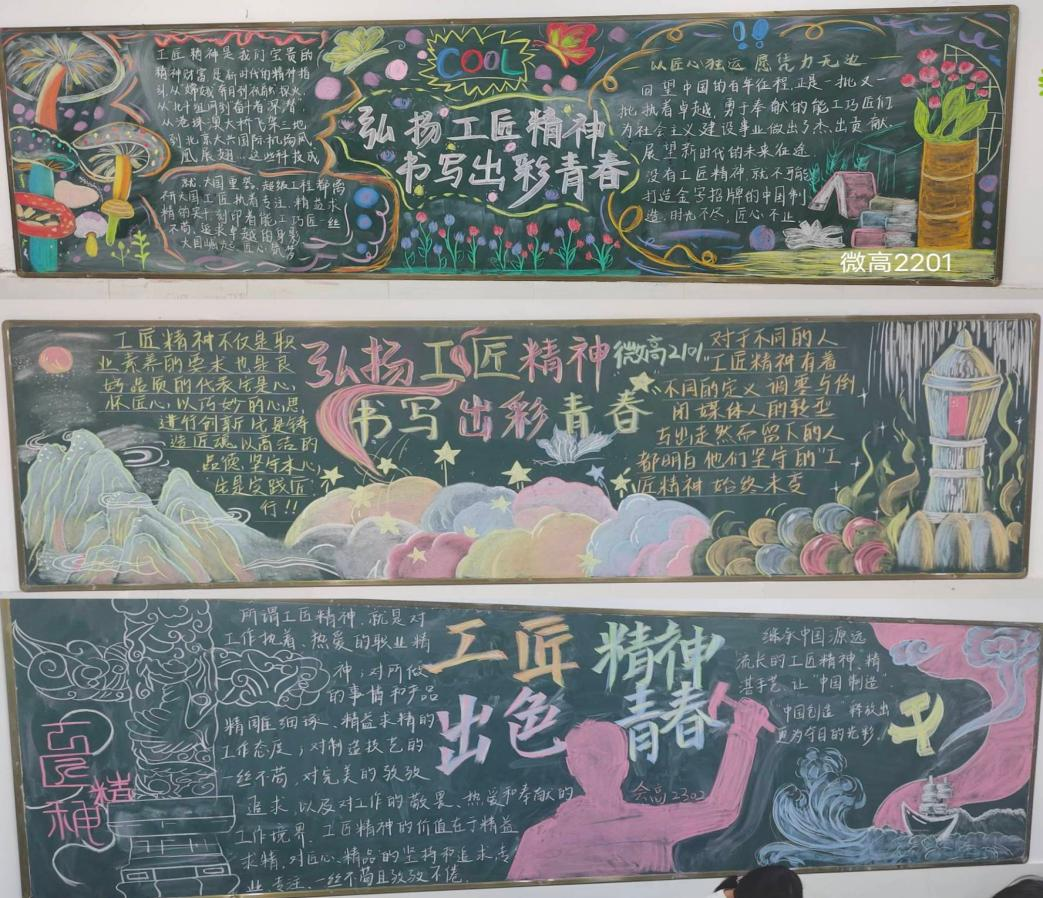 工匠精神是我们宝贵的
精神财富,是新时代的精神指
从港珠澳大桥飞架三地
到北京大兴国际机场凤
凰展翅...这些科技成
就、大国重器、超级工程都离
不开大国工匠执着专注、精益求
COOL
弘扬工匠精神
书写出彩青春
以匠心独运 愿凭力无边
回望中国的百年征程,正是一批又一
批执着卓越,勇于奉献的能工巧匠们
为社会主义建设事业做出了杰出贡献
展望新时代的未来征途,
没有工匠精神,就不可能
打造金字招牌的中国制
造,时光不尽,匠心不止
微高2201
工匠精神不仅是职
业素养的要求也是良
好品质的代表
怀匠心,以巧妙的心思,
进行创新
造匠魂以高洁的
品德,坚守本心,
行!!
弘扬工匠精神
微高2101
书写出彩青春
对于不同的人
工匠精神有着
不同的定义
闭 媒体人的转型
与出走然而留下的人
都明白他们坚守的"工
匠精神 始终未变
工匠精神
所谓工匠精神,就是对
工作执着、热爱的职业精
神;对所做
的事情和产品
精雕细琢、精益求精的
工作态度;对制造技艺的
一丝不苟,对完美的孜孜
追求,以及对工作的敬畏、热爱和奉献的
工作境界.工匠精神的价值在于精益
求精,对匠心、精品的坚持和追求
业、专注、一丝不苟且孜孜不倦.
工匠 精神
出色 青春
会高2302
继承中国源远
流长的工匠精神,精
湛手艺,让"中国制造"
"中国创造"释放出
更为夺目的光彩.